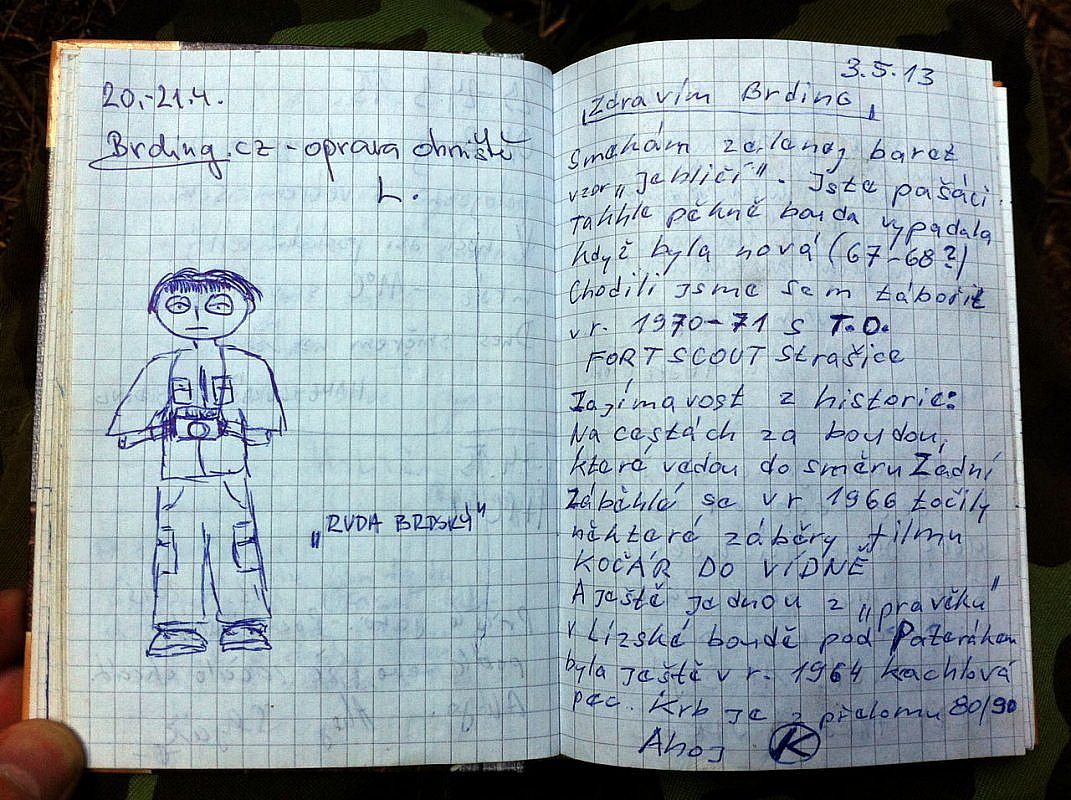 20.-21.4.
Brding.cz - oprava ohniště
L.
„RUDA BRDSKÝ"
3.5.13
Zdravím Brding
Smekám zelenej baret
vzor „jehličí". Jste pašáci.
Takhle pěkně bouda vypadala
když byla nová (67-68?)
Chodili jsme sem tábořit
v r. 1970-71 s T.O.
FORT SCOUT Strašice
Zajímavost z historie:
Na cestách za boudou,
které vedou do směru Zadní
Záběhlé se v r 1966 točily
některé záběry filmu
KOČÁR DO VÍDNĚ
A ještě jednou z „pravěku"
v Lízské boudě pod Paterákem
byla ještě v r. 1964 kachlová
pec. Krb je z přelomu 80/90
Ahoj K